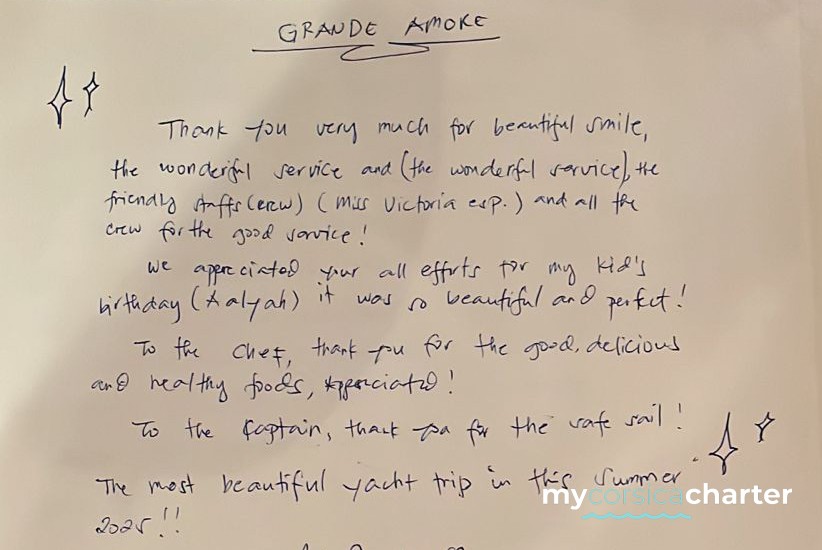 GRANDE AMORE
Thank you very much for beautiful smile,
the wonderful service and (the wonderful service), the
friendly staffs (crew) (miss Victoria esp.) and all the
crew for the good service!
We appreciated your all efforts for my kid's
birthday (Aalyah) it was so beautiful and perfect!
To the Chef, thank you for the good, delicious
and healthy foods, appreciated!
To the Captain, thank you for the safe sail!
The most beautiful yacht trip in this Summer
2025!!
mycorsicacharter